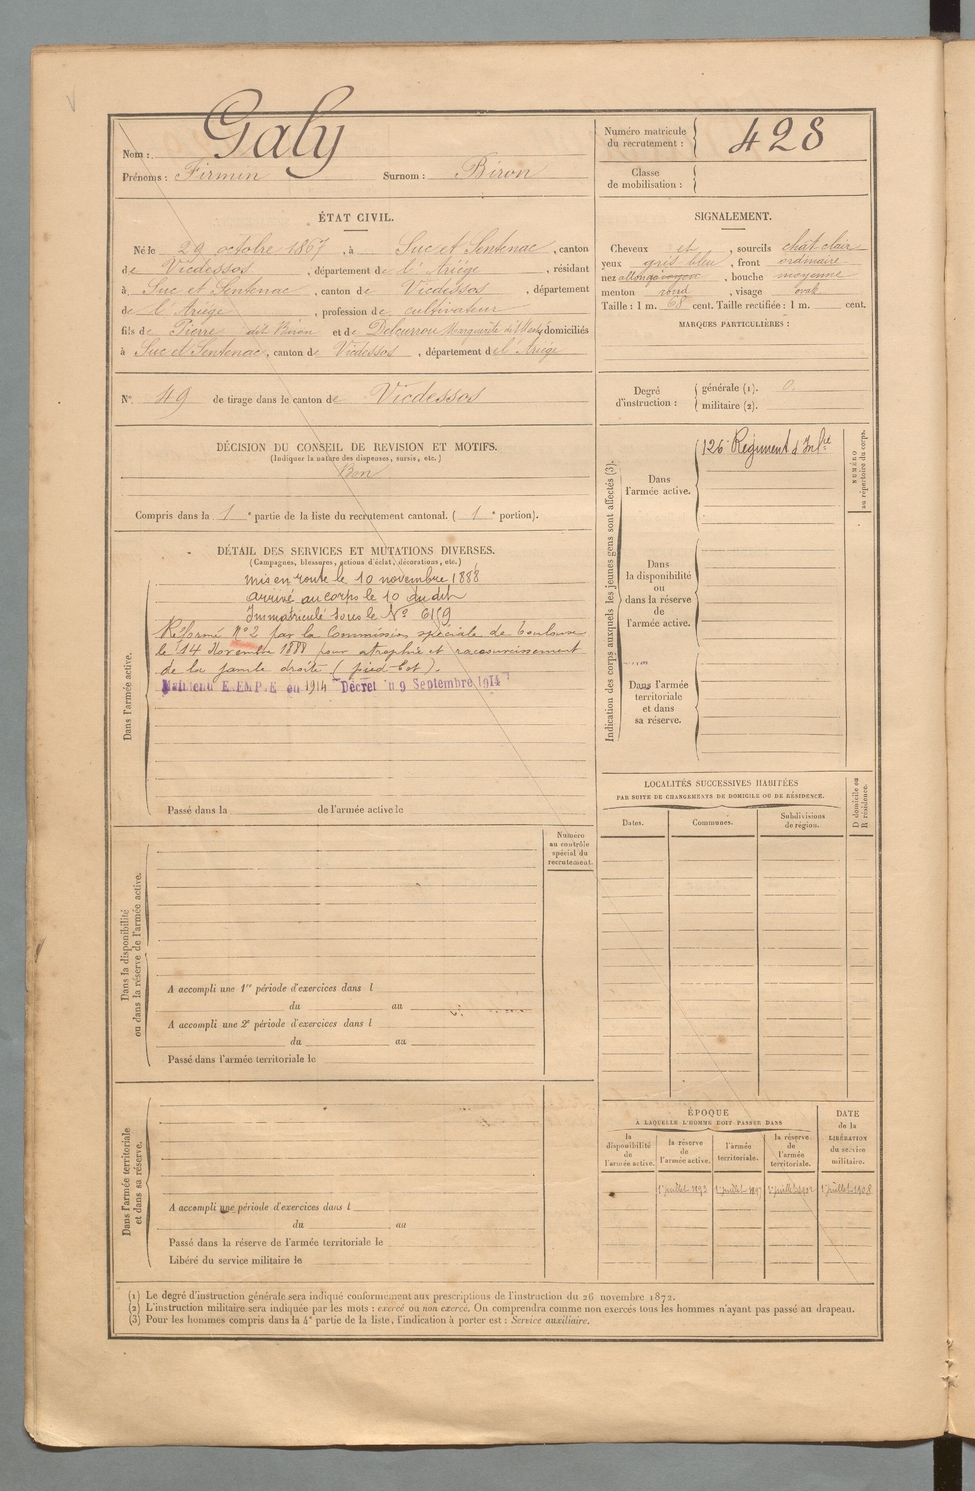 Nom : Galy
Prénoms : Firmin Surnom : Biron
Numéro matricule du recrutement : 428
Classe de mobilisation :
ÉTAT CIVIL.
Né le 29 octobre 1867, à Suc et Sentenac, canton
de Vicdessos, département de l'Ariège, résidant
à Suc et Sentenac, canton de Vicdessos, département
de l'Ariège, profession de cultivateur
fils de Pierre dit Biron et de Delcurrou Marguerite domiciliés
à Suc et Sentenac, canton de Vicdessos, département de l'Ariège
SIGNALEMENT.
Cheveux et, sourcils chat clair
yeux gris bleu, front ordinaire
nez allongé, bouche moyenne
menton rond, visage ovale
Taille : 1 m. 68 cent. Taille rectifiée : 1 m. cent.
MARQUES PARTICULIÈRES :
N° 49 de tirage dans le canton de Vicdessos
Degré d'instruction : générale (1). 0.
militaire (2).
DÉCISION DU CONSEIL DE REVISION ET MOTIFS.
(Indiquer la nature des dispenses, sursis, etc.)
Bon
Compris dans la 1e partie de la liste du recrutement cantonal. ( 1e portion).
DÉTAIL DES SERVICES ET MUTATIONS DIVERSES.
(Campagnes, blessures, actions d'éclat, décorations, etc.)
Dans l'armée active.
Mis en route le 10 novembre 1888
arrivé au corps le 10 du dit
Immatriculé sous le N° 6159
Réformé N° 2 par la Commission spéciale de Toulouse
le 14 Novembre 1888 pour atrophie et raccourcissement
de la jambe droite (pied bot).
Maintenu E.EMP.E en 1914 Décret du 9 Septembre 1914
Passé dans la de l'armée active le
Indication des corps auxquels les jeunes gens sont affectés (3).
NUMÉRO
au répertoire du corps.
Dans
l'armée active.
126e Régiment d'Infrie
Dans
la disponibilité
ou
dans la réserve
de
l'armée active.
Dans l'armée
territoriale
et dans
sa réserve.
LOCALITÉS SUCCESSIVES HABITÉES
PAR SUITE DE CHANGEMENTS DE DOMICILE OU DE RÉSIDENCE.
D domicile ou
R résidence.
Dates. Communes. Subdivisions
de région.
Numéro
au contrôle
spécial du
recrutement.
Dans la disponibilité
ou dans la réserve de l'armée active.
A accompli une 1re période d'exercices dans l
du au
A accompli une 2e période d'exercices dans l
du au
Passé dans l'armée territoriale le
Dans l'armée territoriale
et dans sa réserve.
A accompli une période d'exercices dans l
du au
Passé dans la réserve de l'armée territoriale le
Libéré du service militaire le
ÉPOQUE
À LAQUELLE L'HOMME DOIT PASSER DANS
la
disponibilité
de
l'armée active.
la réserve
de
l'armée active.
l'armée
territoriale.
la réserve
de
l'armée
territoriale.
DATE
de la
LIBÉRATION
du service
militaire.
1er juillet 1893 1er juillet 1897 1er juillet 1902 1er juillet 1908
(1) Le degré d'instruction générale sera indiqué conformément aux prescriptions de l'instruction du 26 novembre 1872.
(2) L'instruction militaire sera indiquée par les mots : exercé ou non exercé. On comprendra comme non exercés tous les hommes n'ayant pas passé au drapeau.
(3) Pour les hommes compris dans la 4e partie de la liste, l'indication à porter est : Service auxiliaire.